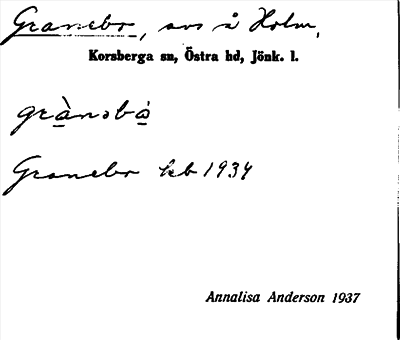 Granebo, avs å Holm,
Korsberga sn, Östra hd, Jönk. l.
grànəbò
Granebo kb 1934
Annalisa Anderson 1937